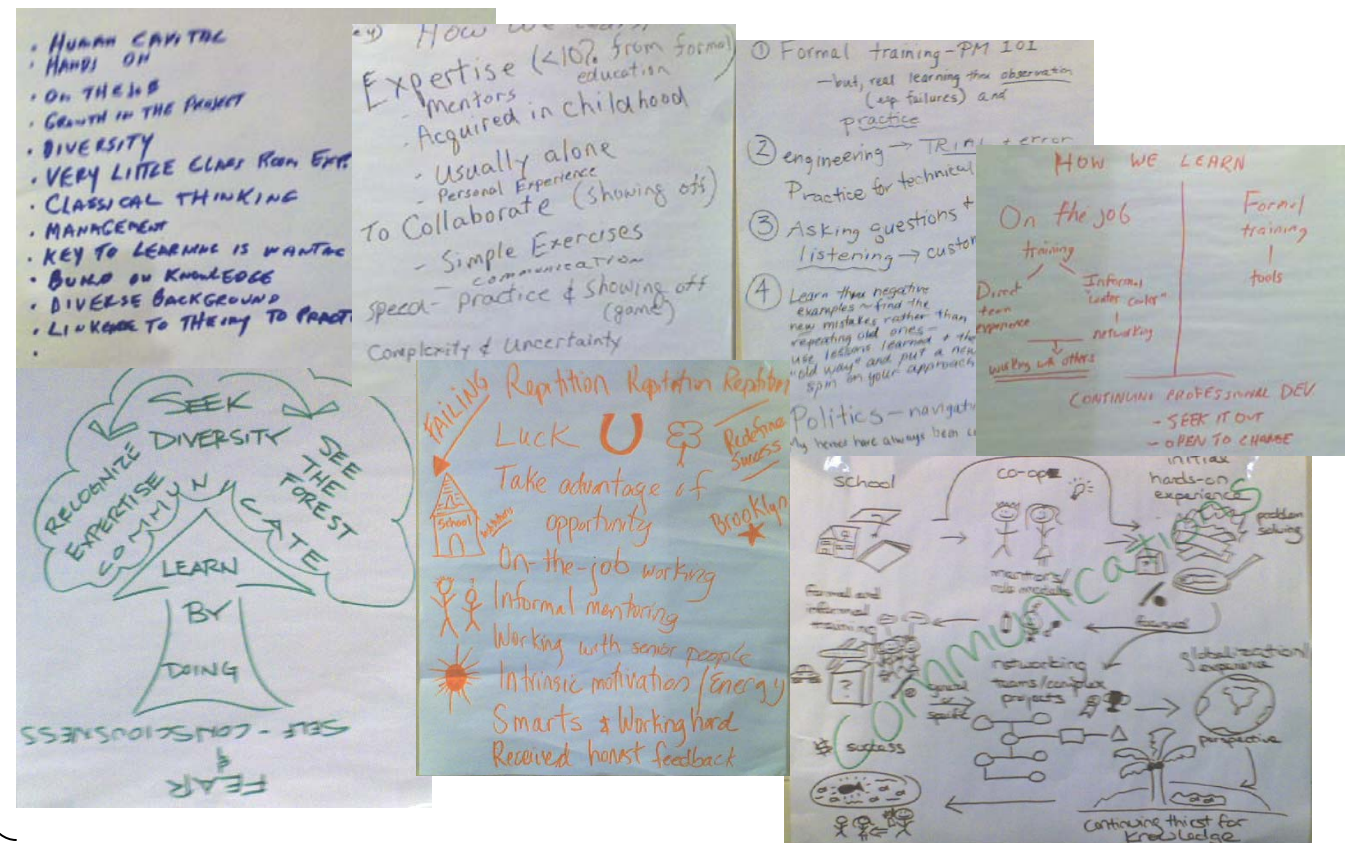 • HUMAN CAPITAL
• HANDS ON
• ON THE JOB
• GROWTH IN THE PROJECT
• DIVERSITY
• VERY LITTLE CLASS ROOM EXP.
• CLASSICAL THINKING
• MANAGEMENT
• KEY TO LEARNING IS WANTING
• BUILD ON KNOWLEDGE
• DIVERSE BACKGROUND
• LINKAGE TO THEORY TO PRACT
•
How we
Expertise (<10% from formal
education)
- mentors
- Acquired in childhood
- Usually alone
- Personal Experience
To Collaborate (showing off)
- Simple Exercises
- communication
speed- practice & showing off
(game)
Complexity & Uncertainty
① Formal training - PM 101
- but, real learning thru observation
(esp failures) and
practice
② engineering → TRIAL + error
Practice for technical
③ Asking questions +
listening → custo
④ Learn thru negative
examples - find the
new mistakes rather than
repeating old ones -
use lessons learned + the
"old way" and put a new
spin on your approach
Politics - navigati
My heroes have always been
HOW WE LEARN
On the job
training
Direct
team
experience
Informal
"water cooler"
networking
working with others
Formal
training
tools
CONTINUING PROFESSIONAL DEV.
- SEEK IT OUT
- OPEN TO CHANGE
SEEK
DIVERSITY
RECOGNIZE
EXPERTISE
SEE
THE
FOREST
COMMUNICATE
LEARN
BY
DOING
SELF-CONSCIOUSNESS
&
FEAR
FAILING
Repitition Repitition Repitition
Luck
Redefine
Success
Take advantage of
opportunity
Brooklyn
School
On-the-job working
Informal mentoring
Working with senior people
Intrinsic motivation / Energy
Smarts & Working hard
Received honest feedback
school
co-ops
initial
hands-on
experience
problem
solving
mentors/
role models
formal and
informal
training
focused
Communications
networking
teams/complex
projects
general
or
specific
globalization/
experience
perspective
$ success
continuing thirst for
knowledge